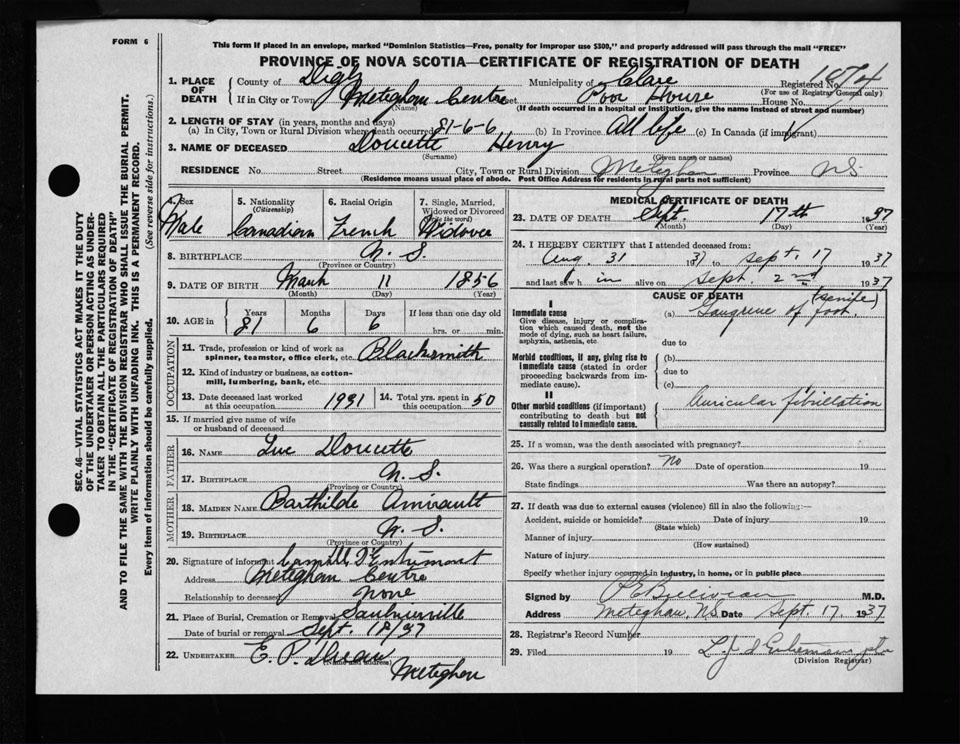 FORM 6
This form if placed in an envelope, marked "Dominion Statistics—Free, penalty for improper use $300," and properly addressed will pass through the mail "FREE"
PROVINCE OF NOVA SCOTIA—CERTIFICATE OF REGISTRATION OF DEATH
1. PLACE OF DEATH
County of Digby Municipality of Clare Registered No.
(For use of Registrar General only)
If in City or Town Meteghan Centre Street Poor House House No.
(Name) (If death occurred in a hospital or institution, give the name instead of street and number)
2. LENGTH OF STAY (in years, months and days)
(a) In City, Town or Rural Division where death occurred 81-6-6 (b) In Province All life (c) In Canada (if immigrant)
3. NAME OF DECEASED Doucette Henry
(Surname) (Given name or names)
RESIDENCE No. Street City, Town or Rural Division Meteghan Province N.S.
(Residence means usual place of abode. Post Office Address for residents in rural parts not sufficient)
4. Sex Male
5. Nationality (Citizenship) Canadian
6. Racial Origin French
7. Single, Married, Widowed or Divorced (Write the word)
8. BIRTHPLACE N. S.
(Province or Country)
9. DATE OF BIRTH March 11 1856
(Month) (Day) (Year)
10. AGE in Years Months Days If less than one day old
81 6 6 hrs. or min.
OCCUPATION
11. Trade, profession or kind of work as spinner, teamster, office clerk, etc. Blacksmith
12. Kind of industry or business, as cotton-mill, lumbering, bank, etc.
13. Date deceased last worked at this occupation 1931 14. Total yrs. spent in this occupation 50
15. If married give name of wife or husband of deceased
FATHER
16. NAME Luc Doucette
17. BIRTHPLACE N. S.
(Province or Country)
MOTHER
18. MAIDEN NAME Barthilde Amirault
19. BIRTHPLACE N. S.
(Province or Country)
20. Signature of informant D'Entremont
Address Meteghan Centre
Relationship to deceased None
21. Place of Burial, Cremation or Removal Saulnierville
Date of burial or removal Sept. 18/37
22. UNDERTAKER E. P.
(Name and address) Meteghan
MEDICAL CERTIFICATE OF DEATH
23. DATE OF DEATH Sept. 17th 1937
(Month) (Day) (Year)
24. I HEREBY CERTIFY that I attended deceased from:
Aug. 31 1937 to Sept. 17 1937
and last saw him alive on Sept. 2nd 1937
CAUSE OF DEATH
I
Immediate cause
Give disease, injury or complication which caused death, not the mode of dying, such as heart failure, asphyxia, asthenia, etc.
(a) Gangrene of foot. (senile)
due to
Morbid conditions, if any, giving rise to immediate cause (stated in order proceeding backwards from immediate cause).
(b)
due to
(c)
II
Other morbid conditions (if important) contributing to death but not causally related to immediate cause.
Auricular fibrillation
25. If a woman, was the death associated with pregnancy?
26. Was there a surgical operation? No Date of operation 19
State findings Was there an autopsy?
27. If death was due to external causes (violence) fill in also the following:—
Accident, suicide or homicide? Date of injury 19
(State which)
Manner of injury
(How sustained)
Nature of injury
Specify whether injury occurred in industry, in home, or in public place
Signed by M.D.
Address Meteghan, N.S. Date Sept. 17, 1937
28. Registrar's Record Number
29. Filed 19
(Division Registrar)
SEC. 46—VITAL STATISTICS ACT MAKES IT THE DUTY
OF THE UNDERTAKER OR PERSON ACTING AS UNDER-
TAKER TO OBTAIN ALL THE PARTICULARS REQUIRED
IN THE "CERTIFICATE OF REGISTRATION OF DEATH"
AND TO FILE THE SAME WITH THE DIVISION REGISTRAR WHO SHALL ISSUE THE BURIAL PERMIT.
WRITE PLAINLY WITH UNFADING INK. THIS IS A PERMANENT RECORD.
Every item of information should be carefully supplied. (See reverse side for instructions.)